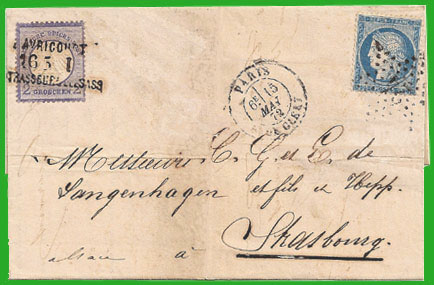 AVRICOURT
16 5 I
STRASSBURG ELSASS
2 GROSCHEN 2
PARIS
6E 15
MAI
72
Messieurs C. G et C. de
Langenhagen et fils a Hepp.
Strasbourg.
alsace à